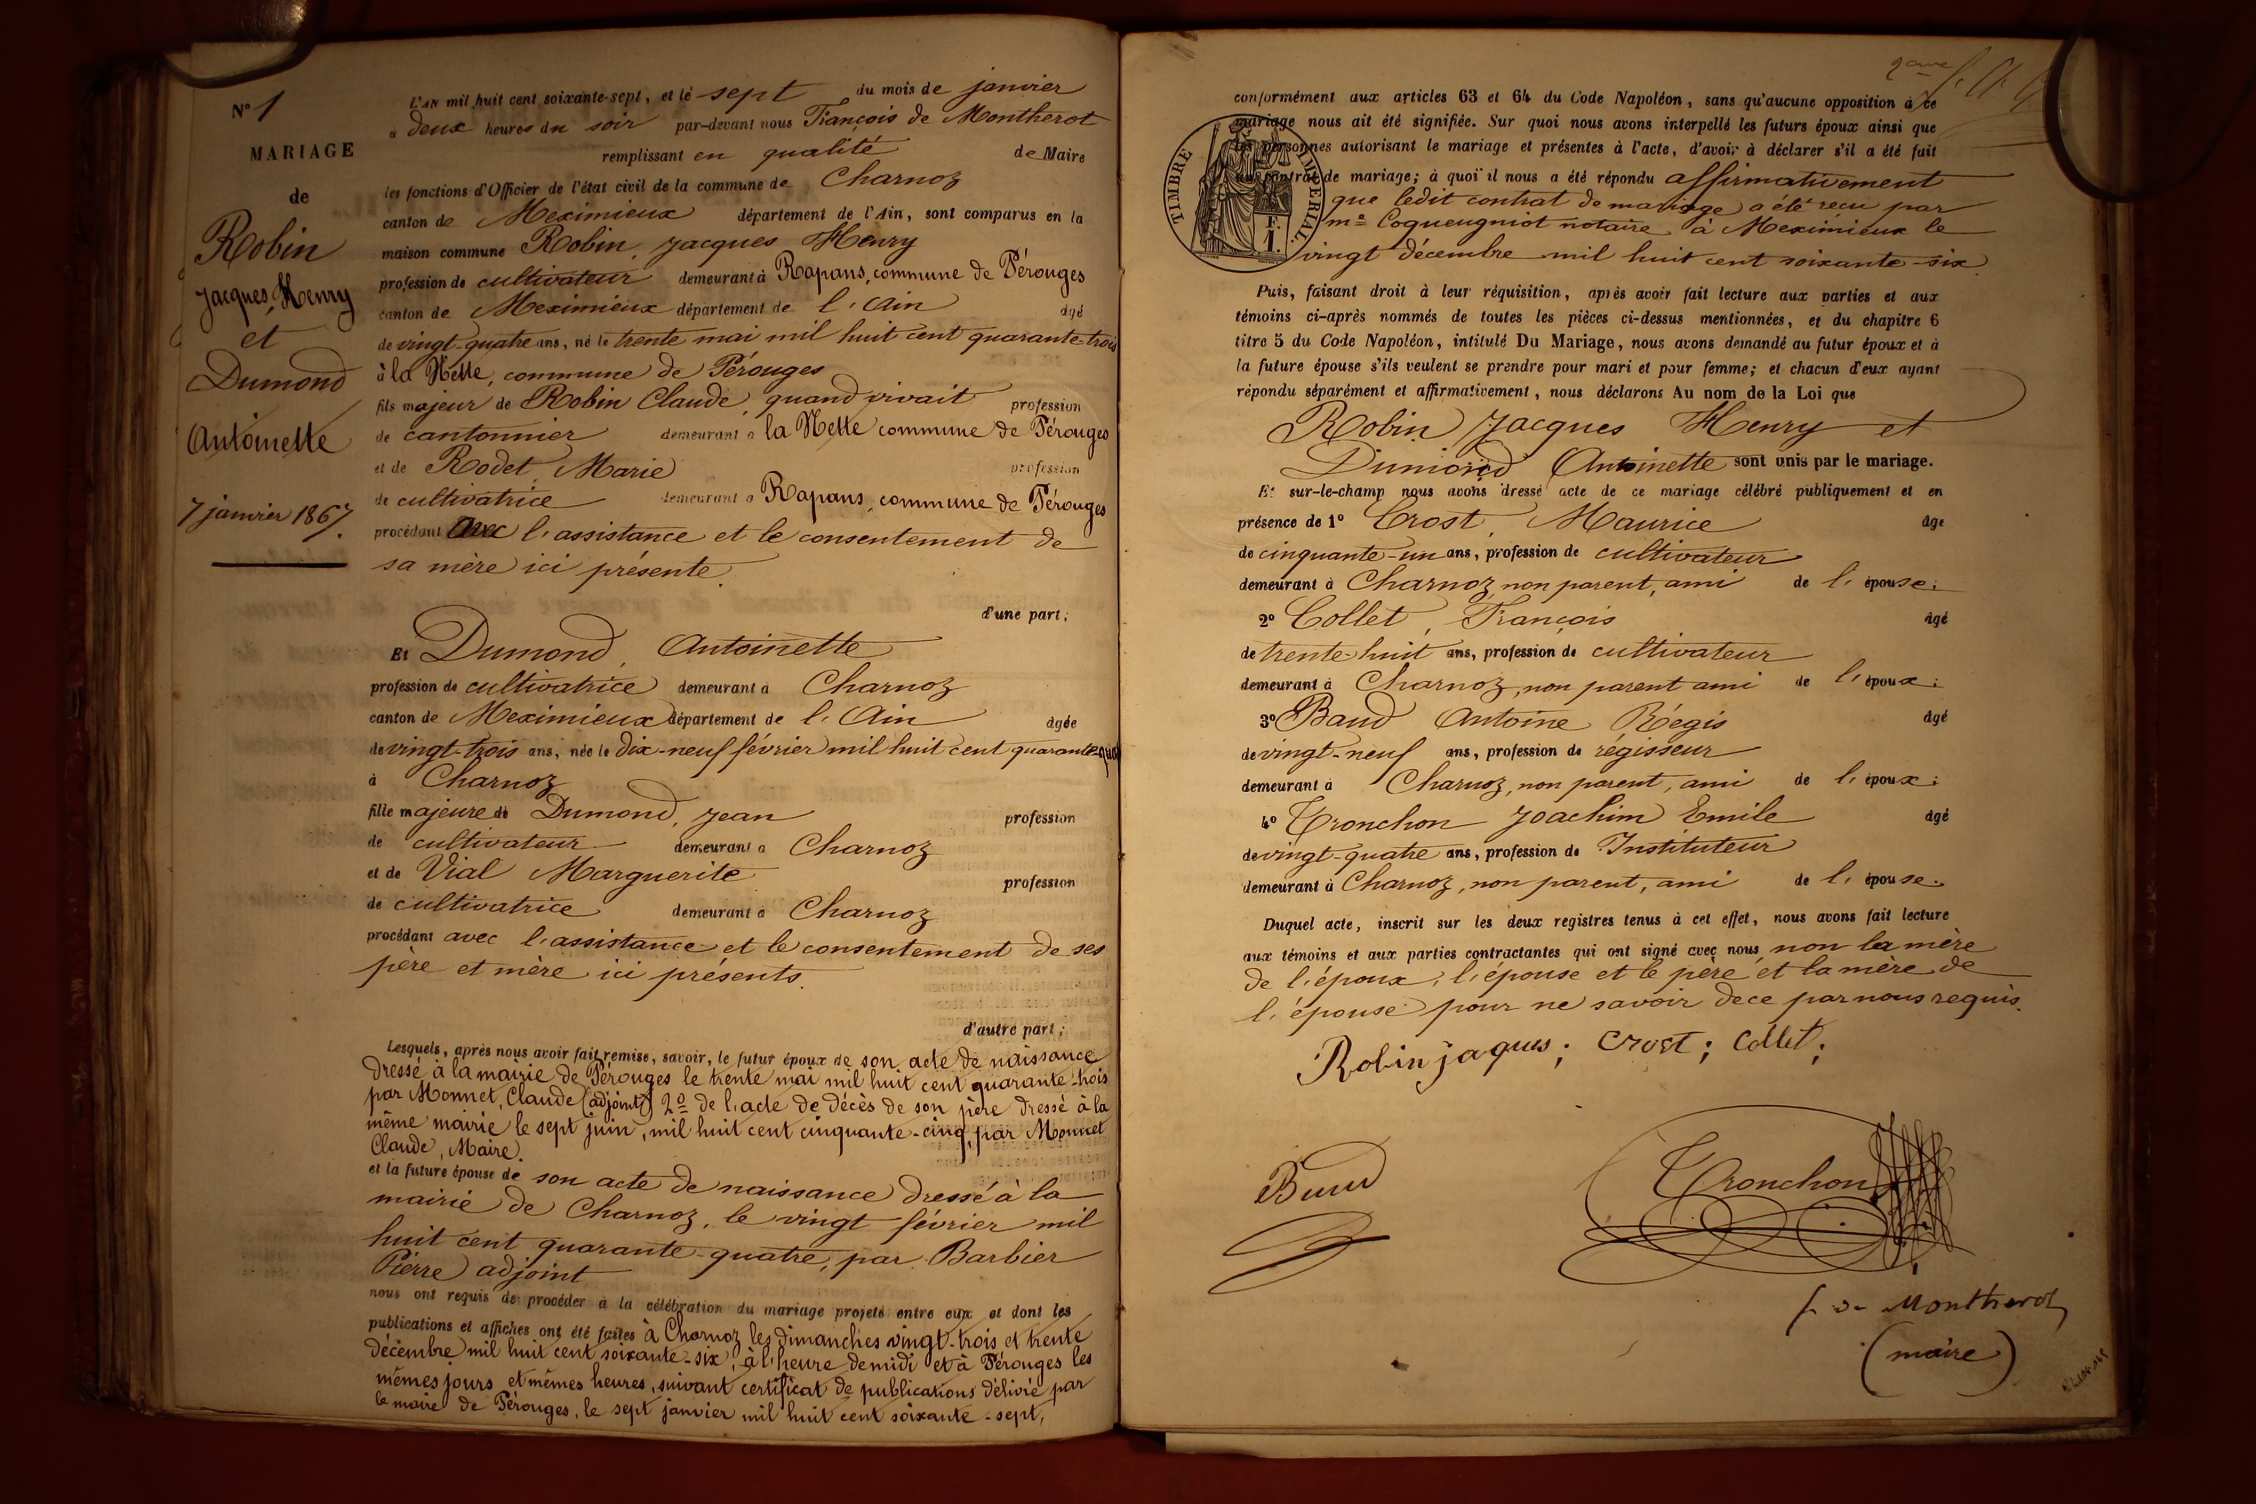 N° 1
MARIAGE
de
Robin
Jacques, Henry
et
Dumond
Antoinette
7 janvier 1867.
L'AN mil huit cent soixante-sept, et le sept du mois de janvier
à deux heures du soir par-devant nous François de Montherot
remplissant en qualité de Maire
les fonctions d'Officier de l'état civil de la commune de Charnoz
canton de Meximieux département de l'Ain, sont comparus en la
maison commune Robin, Jacques Henry
profession de cultivateur demeurant à Rapans, commune de Pérouges
canton de Meximieux département de l'Ain âgé
de vingt-quatre ans, né le trente mai mil huit cent quarante-trois
à la Nelle, commune de Pérouges
fils majeur de Robin Claude, quand vivait profession
de cantonnier demeurant à la Nelle commune de Pérouges
et de Rodet, Marie profession
de cultivatrice demeurant à Rapans, commune de Pérouges
procédant avec l'assistance et le consentement de
sa mère ici présente.
d'une part;
Et Dumond, Antoinette
profession de cultivatrice demeurant à Charnoz
canton de Meximieux département de l'Ain âgée
de vingt-trois ans, née le dix-neuf février mil huit cent quarante-
à Charnoz
fille majeure de Dumond, Jean profession
de cultivateur demeurant à Charnoz
et de Vial Marguerite profession
de cultivatrice demeurant à Charnoz
procédant avec l'assistance et le consentement de ses
père et mère ici présents.
d'autre part;
Lesquels, après nous avoir fait remise, savoir, le futur époux de son acte de naissance
dressé à la mairie de Pérouges le trente mai mil huit cent quarante-trois
par Monnet, Claude (adjoint) 2° de l'acte de décès de son père dressé à la
même mairie le sept juin, mil huit cent cinquante-cinq, par Monnet
Claude, Maire.
et la future épouse de son acte de naissance dressé à la
mairie de Charnoz, le vingt février mil
huit cent quarante-quatre, par Barbier
Pierre adjoint
nous ont requis de procéder à la célébration du mariage projeté entre eux et dont les
publications et affiches ont été faites à Charnoz les dimanches vingt-trois et trente
décembre mil huit cent soixante-six, à l'heure de midi et à Pérouges les
mêmes jours et mêmes heures, suivant certificat de publications délivré par
le maire de Pérouges, le sept janvier mil huit cent soixante-sept,
2eme
conformément aux articles 63 et 64 du Code Napoléon, sans qu'aucune opposition à ce
mariage nous ait été signifiée. Sur quoi nous avons interpellé les futurs époux ainsi que
les personnes autorisant le mariage et présentes à l'acte, d'avoir à déclarer s'il a été fait
un contrat de mariage; à quoi il nous a été répondu affirmativement
que ledit contrat de mariage a été reçu par
me Coqueugniot notaire à Meximieux le
vingt décembre mil huit cent soixante-six.
TIMBRE IMPERIAL.
F.
1.
Puis, faisant droit à leur réquisition, après avoir fait lecture aux parties et aux
témoins ci-après nommés de toutes les pièces ci-dessus mentionnées, et du chapitre 6
titre 5 du Code Napoléon, intitulé Du Mariage, nous avons demandé au futur époux et à
la future épouse s'ils veulent se prendre pour mari et pour femme; et chacun d'eux ayant
répondu séparément et affirmativement, nous déclarons Au nom de la Loi que
Robin Jacques Henry et
Dumond Antoinette sont unis par le mariage.
Et sur-le-champ nous avons dressé acte de ce mariage célébré publiquement et en
présence de 1° Crost, Maurice âgé
de cinquante-un ans, profession de cultivateur
demeurant à Charnoz, non parent, ami de l'épouse;
2° Collet, François âgé
de trente-huit ans, profession de cultivateur
demeurant à Charnoz, non parent ami de l'époux;
3° Baud Antoine Régis âgé
de vingt-neuf ans, profession de régisseur
demeurant à Charnoz, non parent, ami de l'époux;
4° Tronchon Joachim Emile âgé
de vingt-quatre ans, profession de Instituteur
demeurant à Charnoz, non parent, ami de l'épouse.
Duquel acte, inscrit sur les deux registres tenus à cet effet, nous avons fait lecture
aux témoins et aux parties contractantes qui ont signé avec nous, non la mère
de l'époux, l'épouse et le père et la mère de
l'épouse pour ne savoir de ce par nous requis.
Robin jaques; Crost; Collet;
Baud
Tronchon
f. de Montherot
(maire)